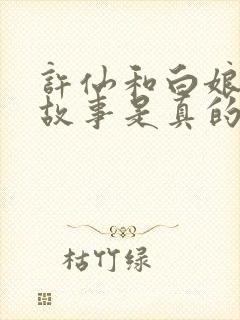 許仙和白娘
故事是真的
枯竹绿